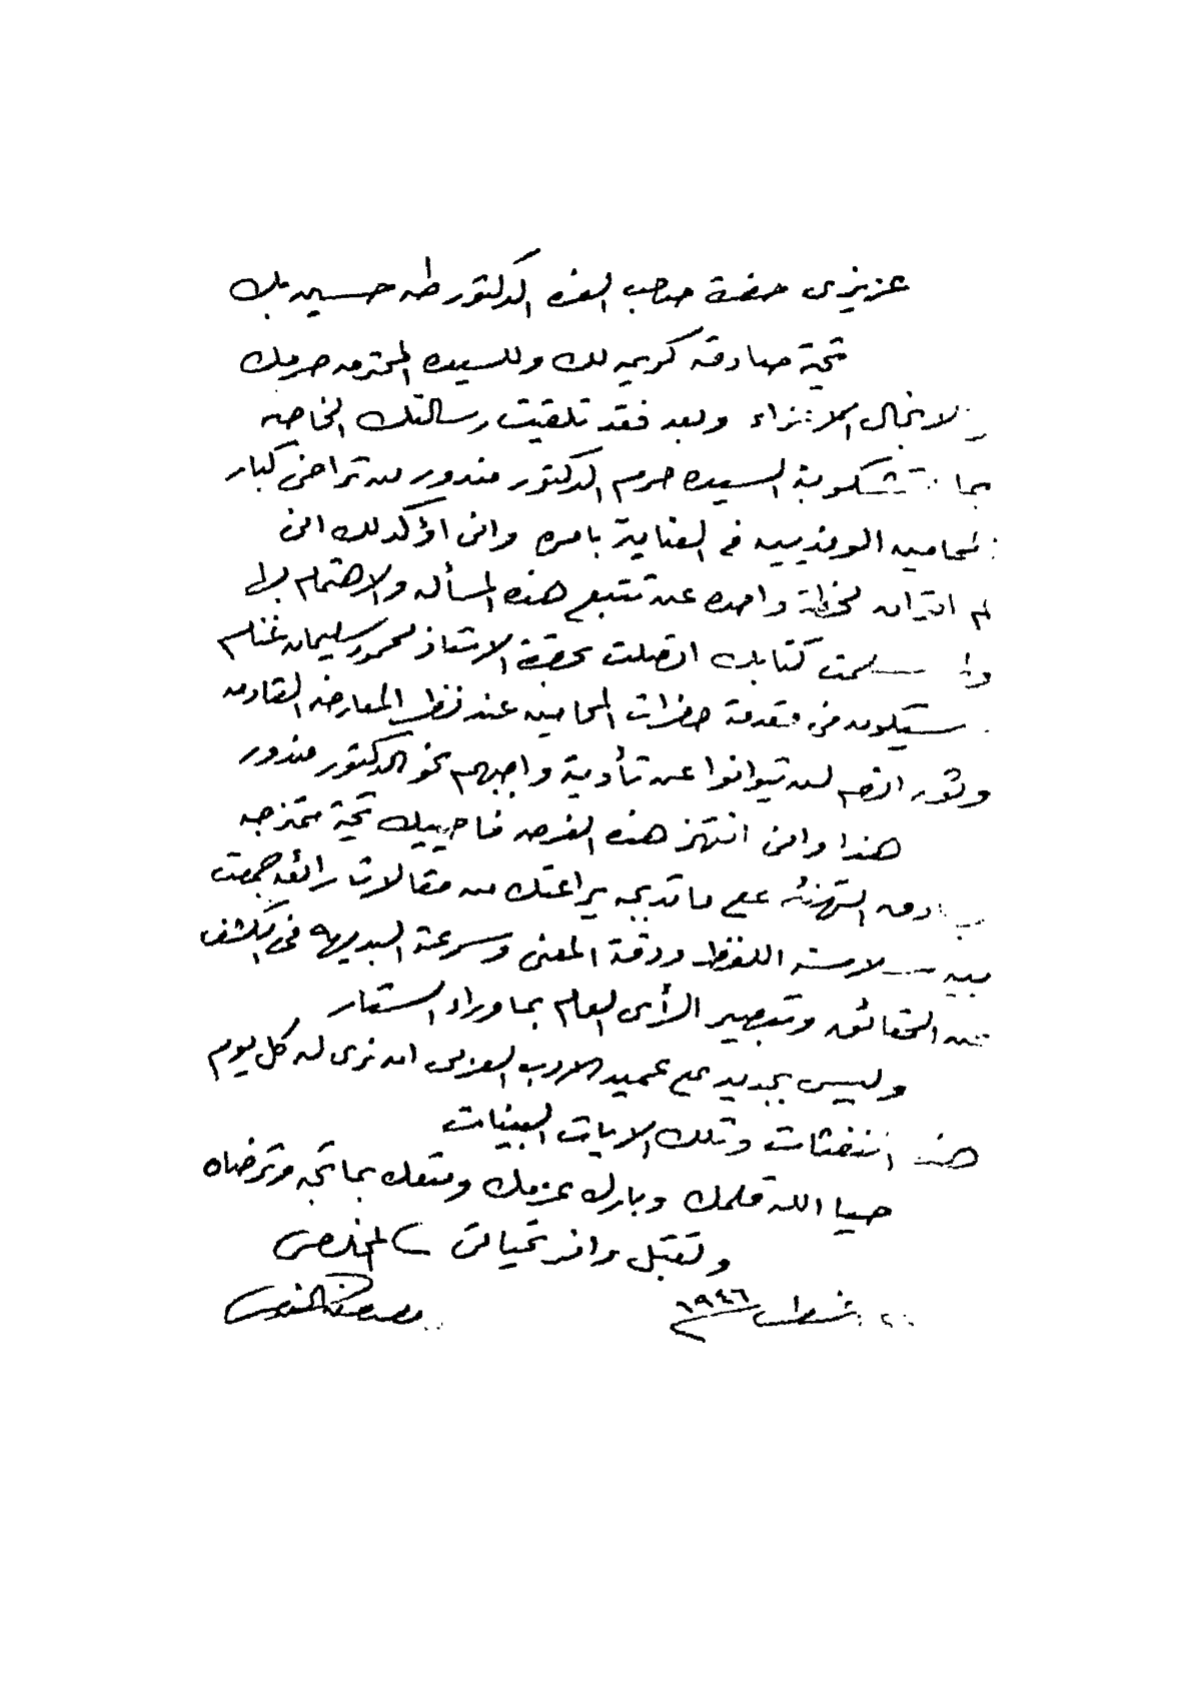 عزيزى حضرة صاحب العزه الدكتور طه حسين بك
تحية صادقه كريمه لك وللسيده المحترمه حرمك
والانجال الاعزاء وبعد فقد تلقيت رسالتك الخاصه
بما تشكو منه السيده حرم الدكتور مندور من تراخى كبار
المحامين الوفديين فى العناية بامره وانى اؤكد لك انى
لم اتوان لحظة واحده عن تتبع هذه المسأله والاهتمام بها
كتابك اتصلت بحضرة الاستاذ محمود سليمان غنام
سيكون فى مقدمة حضرات المحامين عند نظر المعارضه القادمه
وثق انهم لن يتوانوا عن تأدية واجبهم نحو الدكتور مندور
هذا وانى انتهز هذه الفرصه فاحييك تحية ممتزجه
التهنئه على ما تدبجه يراعتك من مقالات رائعه جمعت
بين سلاسة اللفظ ودقة المعنى وسرعة البديهه فى الكشف
عن الحقائق وتبصير الرأى العام بما وراء الستار
وليس بجديد على عميد الادب العربى ان نرى له كل يوم
هذه النفثات وتلك الايات البينات
حيا الله قلمك وبارك عزمك ومتعك بما تحبه وترضاه
وتقبل وافر تحياتى المخلص
اغسطس ١٩٤٦
مصطفى النحاس